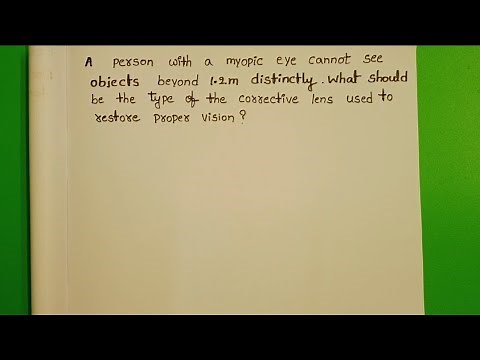 A person with a myopic eye cannot see
objects beyond 1.2m distinctly. What should
be the type of the corrective lens used to
restore proper vision?